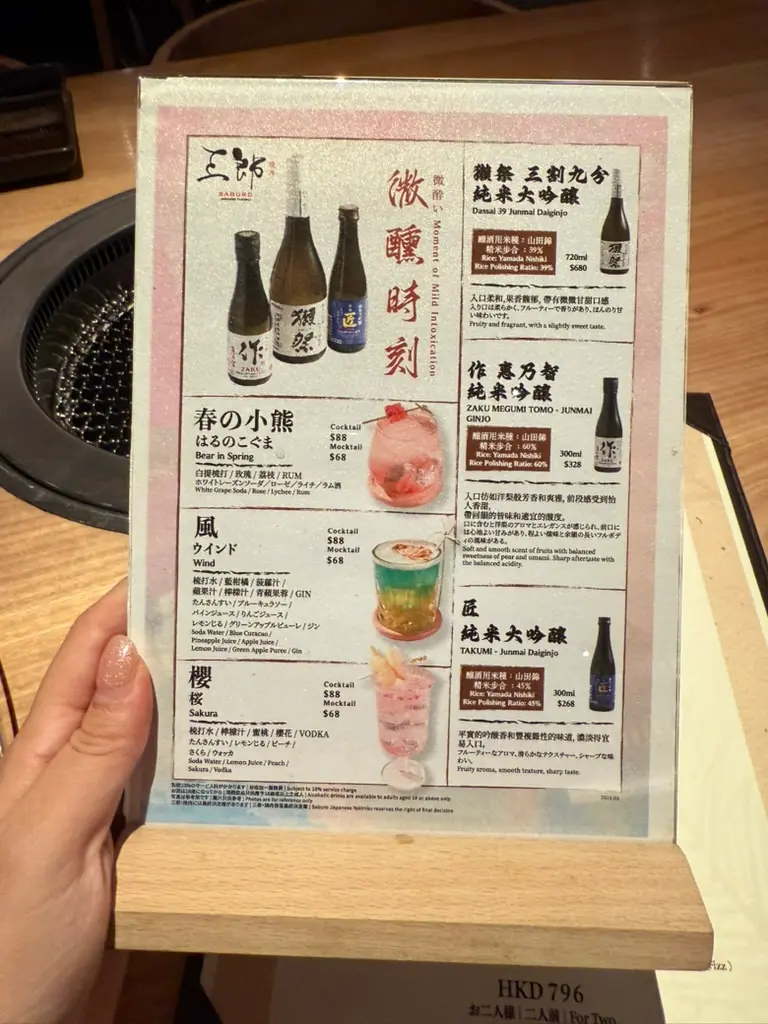 三郎
焼肉
SABURO
微醺時刻
微酔い Moment of Mild Intoxication
作
ZAKU
獺祭
匠
春の小熊
はるのこぐま
Bear in Spring
Cocktail
$88
Mocktail
$68
白提梳打 / 玫瑰 / 荔枝 / RUM
ホワイトレーズンソーダ／ローゼ／ライチ／ラム酒
White Grape Soda / Rose / Lychee / Rum
風
ウインド
Wind
Cocktail
$88
Mocktail
$68
梳打水 / 藍柑橘 / 菠蘿汁 /
蘋果汁 / 檸檬汁 / 青蘋果蓉 / GIN
たんさんすい / ブルーキュラソー /
パインジュース / りんごジュース /
レモンじる / グリーンアップルピューレ / ジン
Soda Water / Blue Curacao /
Pineapple Juice / Apple Juice /
Lemon Juice / Green Apple Puree / Gin
櫻
桜
Sakura
Cocktail
$88
Mocktail
$68
梳打水 / 檸檬汁 / 蜜桃 / 櫻花 / VODKA
たんさんすい / レモンじる / ピーチ /
さくら / ウォッカ
Soda Water / Lemon Juice / Peach /
Sakura / Vodka
獺祭 三割九分
純米大吟釀
Dassai 39 Junmai Daiginjo
釀酒用米種：山田錦
精米步合：39%
Rice: Yamada Nishiki
Rice Polishing Ratio: 39%
720ml
$680
獺祭
入口柔和,果香馥郁, 帶有微微甘甜口感
入り口は柔らかく、フルーティーで香りがあり、ほんのり甘
い味わいです。
Fruity and fragrant, with a slightly sweet taste.
作 恵乃智
純米吟釀
ZAKU MEGUMI TOMO - JUNMAI
GINJO
釀酒用米種：山田錦
精米步合：60%
Rice: Yamada Nishiki
Rice Polishing Ratio: 60%
300ml
$328
作
入口彷如洋梨般芳香和爽雅, 前段感受到怡
人香甜,
帶回韻的旨味和適宜的酸度。
口に含むと洋梨のアロマとエレガンスが感じられ、前口に
は心地よい甘みがあり、程よい酸味と余韻の長いフルボデ
ィの風味がある。
Soft and smooth scent of fruits with balanced
sweetness of pear and umami. Sharp aftertaste with
the balanced acidity.
匠
純米大吟釀
TAKUMI - Junmai Daiginjo
釀酒用米種：山田錦
精米步合：45%
Rice: Yamada Nishiki
Rice Polishing Ratio: 45%
300ml
$268
平實的吟釀香和豐複雜性的味道, 濃淡得宜
易入口。
フルーティーなアロマ、滑らかなテクスチャー、シャープな味わ
い。
Fruity aroma, smooth texture, sharp taste.
別途10%のサービス料がかかります | 另收加一服務費 | Subject to 10% service charge
Alcoholic drinks are available to adults aged 18 or above only
Photos are for reference only
Saburo Japanese Yakiniku reserves the right of final decision
HKD 796
お二人様 | 二人前 | For Two